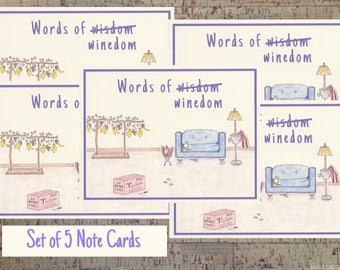 Words of wisdom
winedom
Words of wisdom
winedom
Words of wisdom
winedom
Words of wisdom
winedom
wisdom
winedom
Set of 5 Note Cards